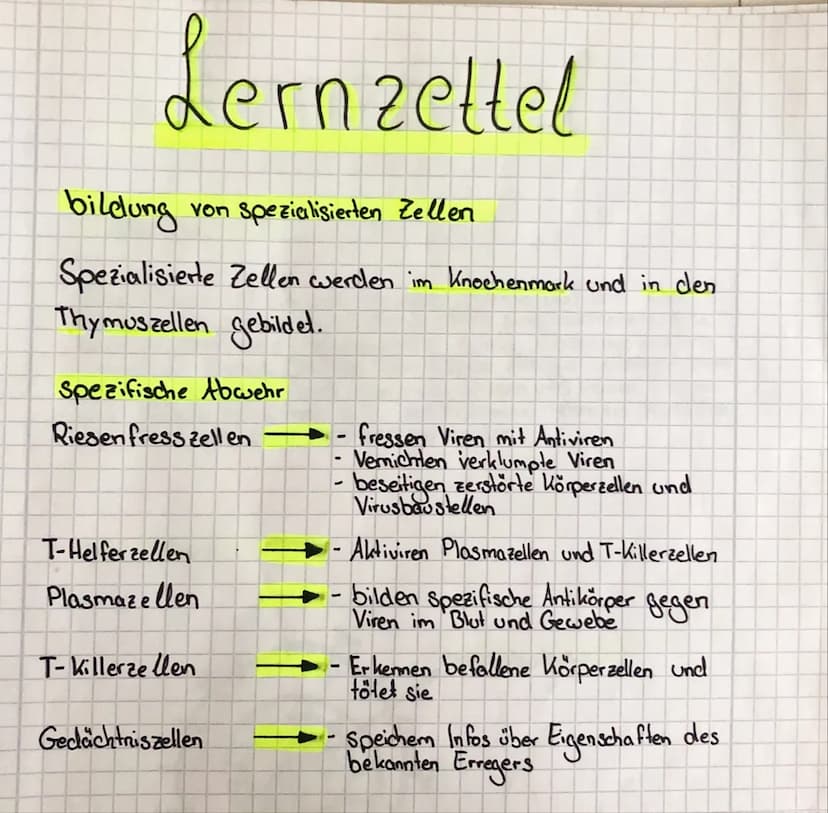 Lernzettel
bildung von spezialisierten Zellen
Spezialisierte Zellen werden im Knochenmark und in den
Thymuszellen gebildet.
spezifische Abwehr
Riesenfresszellen → - fressen Viren mit Antiviren
- Vernichten verklumpte Viren
- beseitigen zerstörte Körperzellen und
Virusbaustellen
T-Helferzellen → - Aktiviren Plasmazellen und T-Killerzellen
Plasmazellen → - bilden spezifische Antikörper gegen
Viren im Blut und Gewebe
T-Killerzellen → - Erkennen befallene Körperzellen und
tötet sie
Gedächtniszellen → - speichern Infos über Eigenschaften des
bekannten Erregers